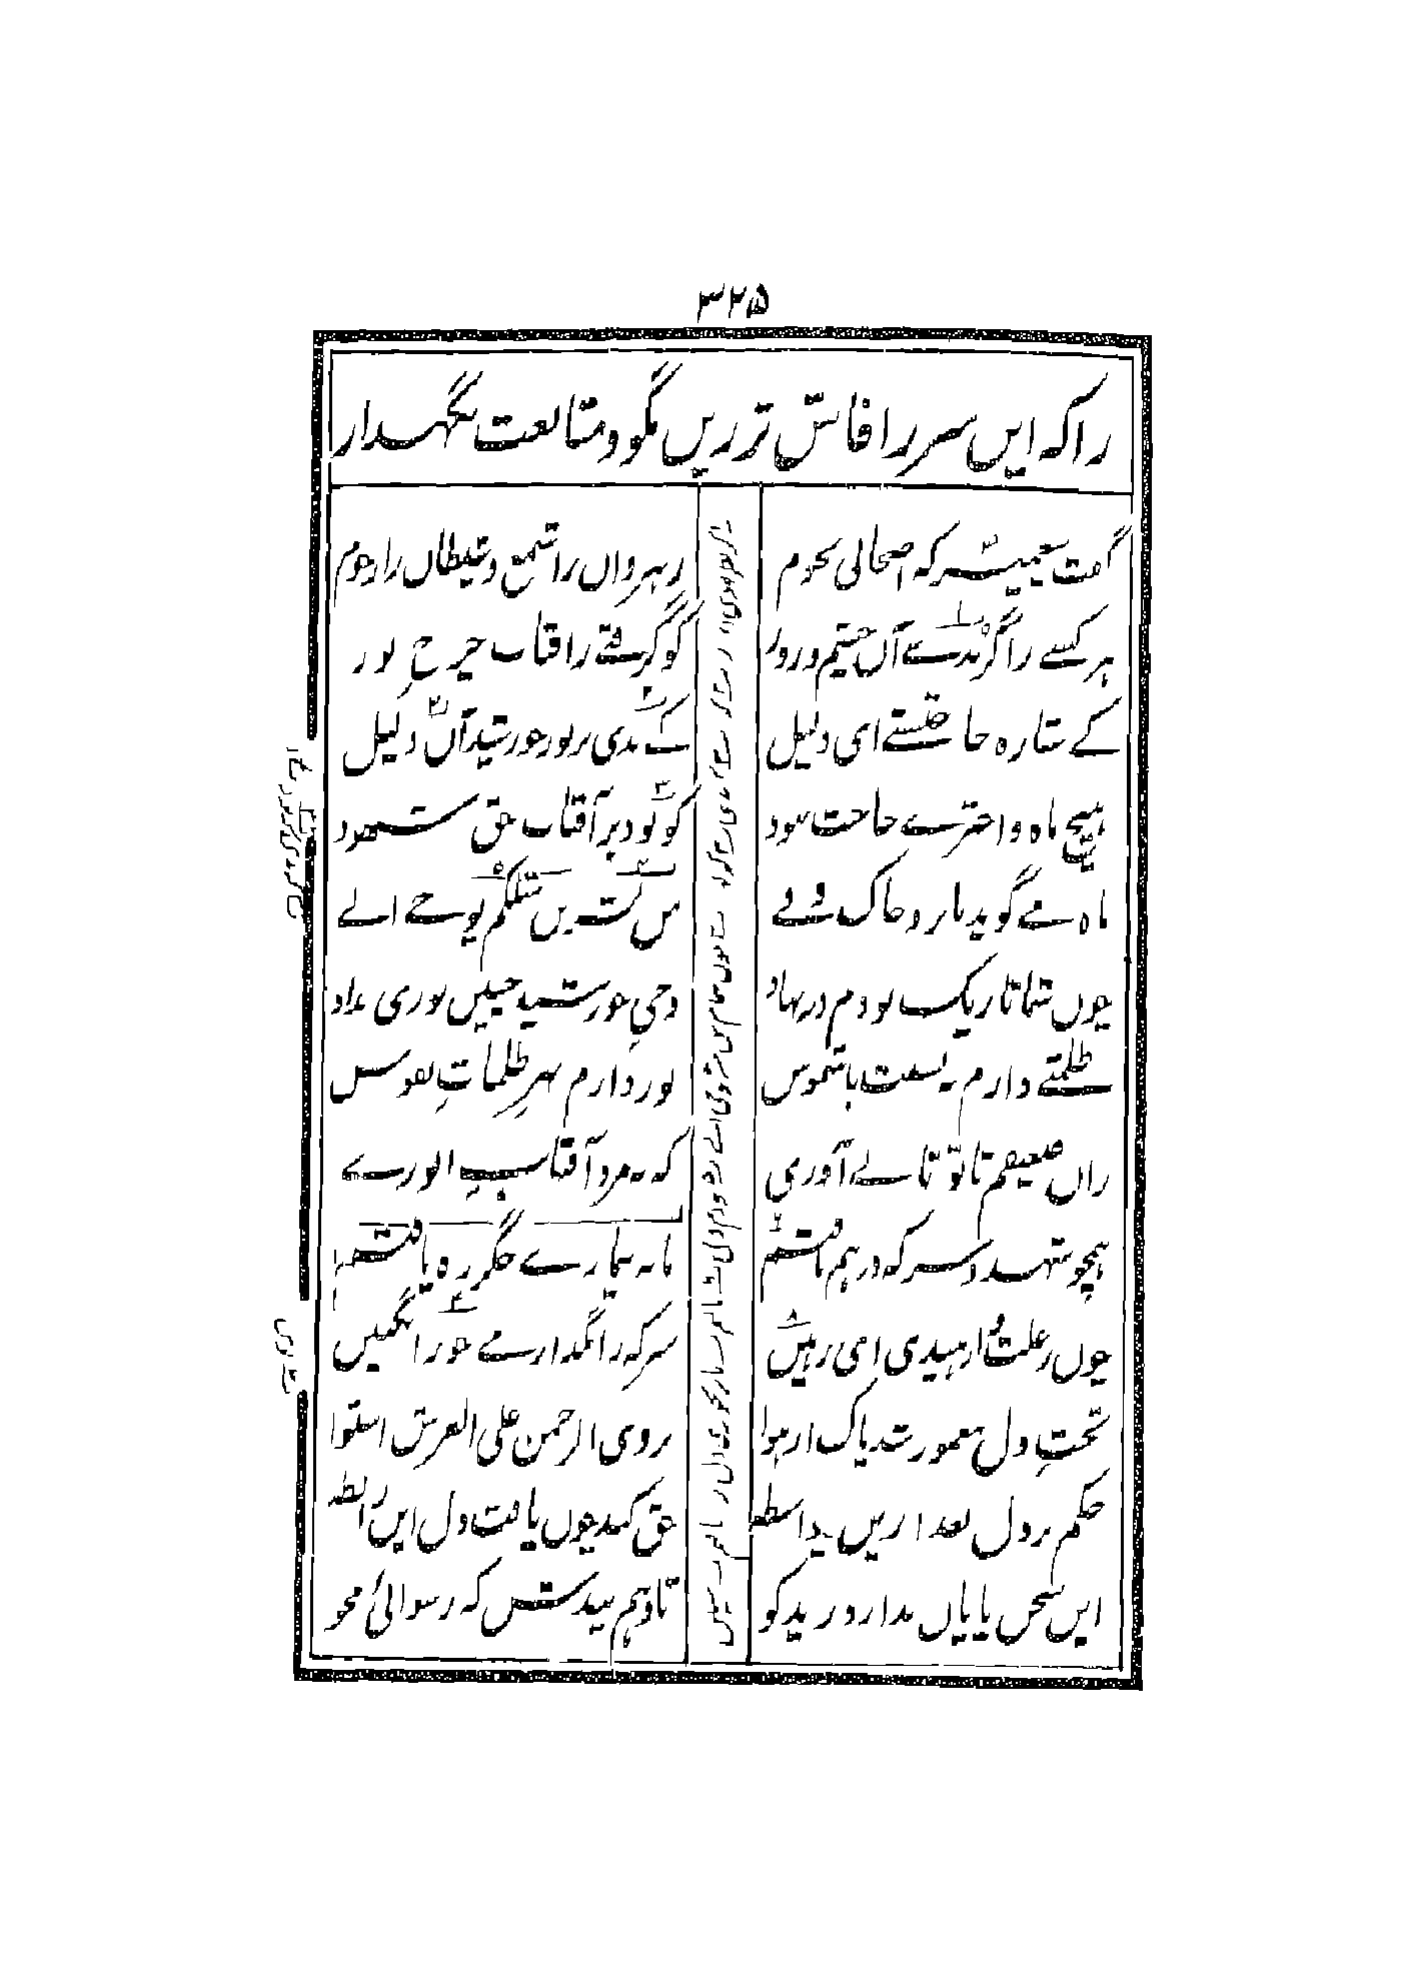 ۳۲۵
را کہ ایں سر را فاش تر ریں مگو و متابعت نگہدار
گفت پیغمبر کہ اصحابی نجوم رہرواں را شمع و شیطاں را رجوم
ہر کسے را گر بدے آں چشم و زور کو گرفتے ز افتاب چرخ نور
کے ستارہ حاجتستے ای ذلیل کے بدی بر نور خورشید آں دلیل
ہیچ ماہ و اخترے حاجت نبود کو بود بر آفتاب حق شہود
ماہ مے گوید بابر و خاک و فے من بشر من مثلکم یوحے الے
چوں شما تاریک بودم در نہاد وحی خورشیدم چنیں نوری بداد
ظلمتے دارم بہ نسبت با شموس نور دارم بہر ظلمات نفوس
زاں ضعیفم تا تو تابے آوری کہ نہ مرد آفتاب انورے
ہمچو شہد و سرکہ درہم بافتم تا بہ بیمارے جگر رہ یافتم
چوں ز علت وارہیدی ای رہیں سرکہ را بگذار مے خور انگبیں
تخت دل معمور شد پاک از ہوا بر وی الرحمن علی العرش استوا
حکم بر دل بعد ازیں بے واسطہ حق کند چوں یافت دل ایں رابطہ
ایں سخن پایاں ندارد زید کو تا دہم پندش کہ رسوائی مجو